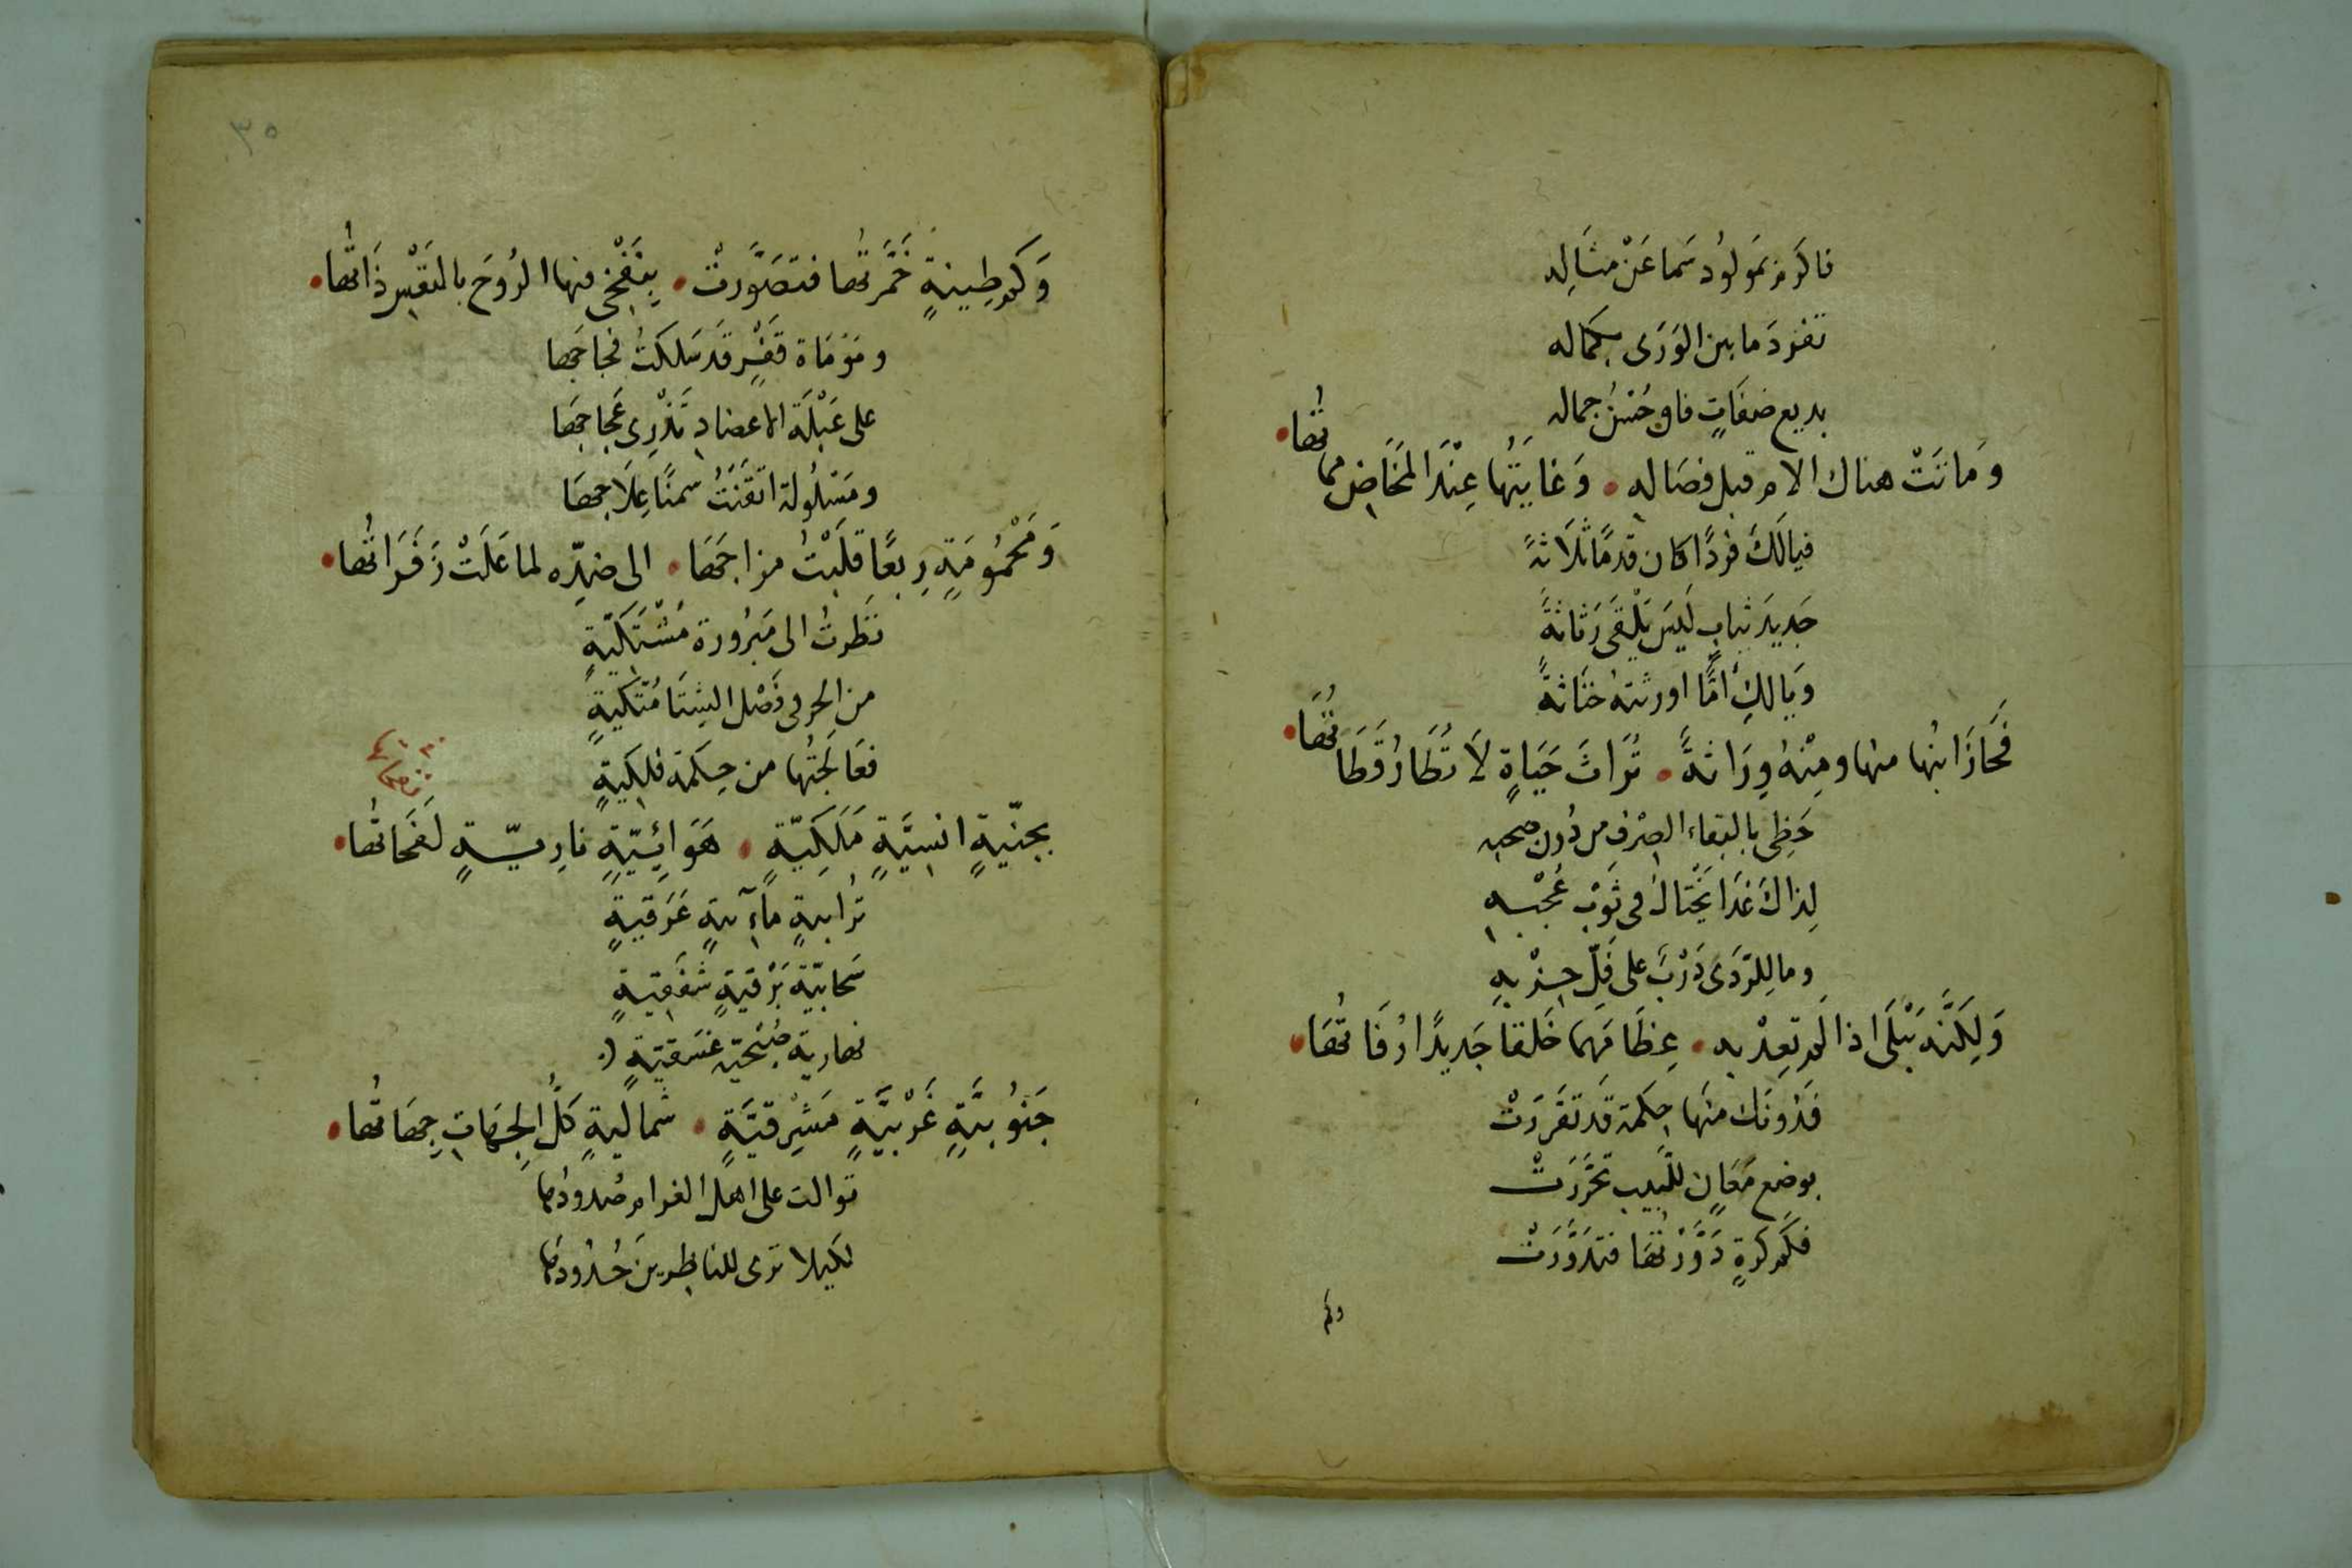 فاكرم بمَولُود سَما عَنْ مثَالِه
تفرد ما بين الوَرَى بكماله
بديع صفَاتٍ فاق حُسْنُ جماله
وَماتَتْ هناك الام قبل فصَاله • وَغايَتُها عِنْدَ المَخَاضِ مماتُها •
فيالَكَ فردًا كان قدمًا ثلاثةً
جَديدَ ثيابٍ لَيسَ يَلْقَى رَثاثةً
وَيالكِ أمًّا اورثته خثَاثةً
فَحَازَ ابنُها منها ومِنْهُ وِرَاثةً • تُرَاثَ حَيَاةٍ لَا تُطَارُ قَطَاتُها •
حَظِى بالبقاء الصِرْفِ من دُون صحبه
لِذاكَ غَدَا يَخْتالُ فى ثَوْبِ عُجْبِه
وما لِلرَّدَى دَرْبٌ على فَلِّ حِزْبِهِ
وَلكِنَّه يَبْلَى اذا لم تعِدْ به • عِظَامَهَا خَلقًا جَديدًا رُفَاتُهَا •
فَدُونَك منهَا حِكمة قَد تَقَررَتْ
بوضع مَعَانٍ للَّبيب تَحَرَّرَتْ
فَكَم كرَةٍ دَوَّرْتُهَا فتدَوَّرَتْ
وكم
٣٥
وَكم طِينةٍ خَمَّرتُها فتصَوَّرتْ • بِنَفْخِى فيها الروُحَ بالنَفْسِ ذَاتُها •
ومَوْمَاة قَفْرٍ قَد سَلكتُ فجاجَها
على عَبْلَة الاعضادِ تَذْرِى عَجاجَها
ومَسْلُولة اتقَنتُ سمنًا عِلَاجهَا
وَمَحْمُومَةٍ رِبعًا قلَبْتُ مزاجَهَا • الى ضدِّه لما عَلَتْ زَفَرَاتُها •
نظَرتُ الى مَبرُورة مُشْتَكيّةٍ
من الحر فى فَصْل الشِتَا مُتَّكيةٍ
فعَالَجتُها من حِكمة فلكيةٍ
بجنّيةٍ انسيَّةٍ مَلَكِيّةٍ • هَوَائِيّةٍ نارِيّةٍ لَفَحَاتُها •
تُرابيةٍ مآءيةٍ غَرَقيةٍ
سَحابيّة بَرْقيةٍ شفَقيةٍ
نهارية صُبْحيّة غسَقيّةٍ
جَنوُبيَّةٍ غَرْبيَّةٍ مَشرِقيَّةٍ • شماليةٍ كُلُّ الجِهَاتِ جِهَاتُها •
توالت على اهل الغرام صُدودُها
لكيلا ترى للناظرينَ حُدُودُها